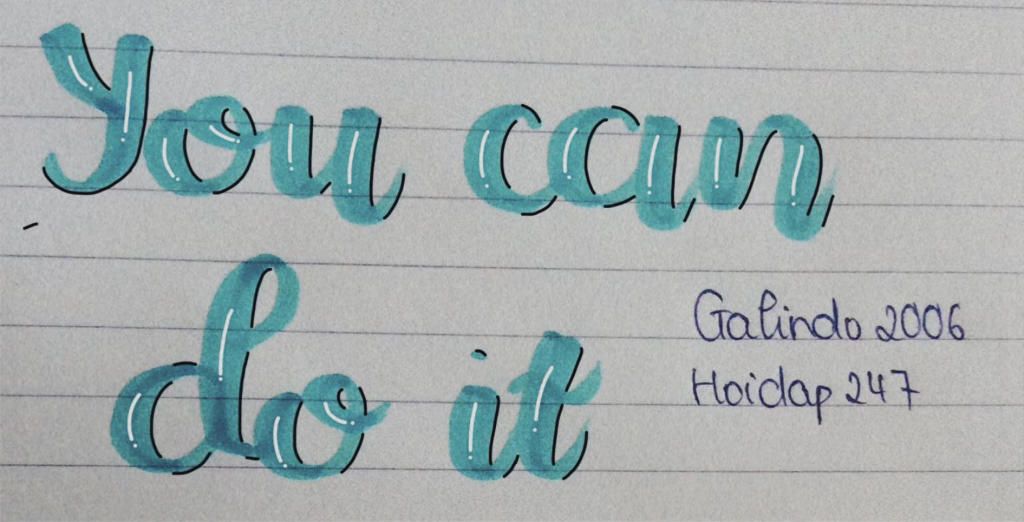 You can
do it
Galindo 2006
Hoidap 247